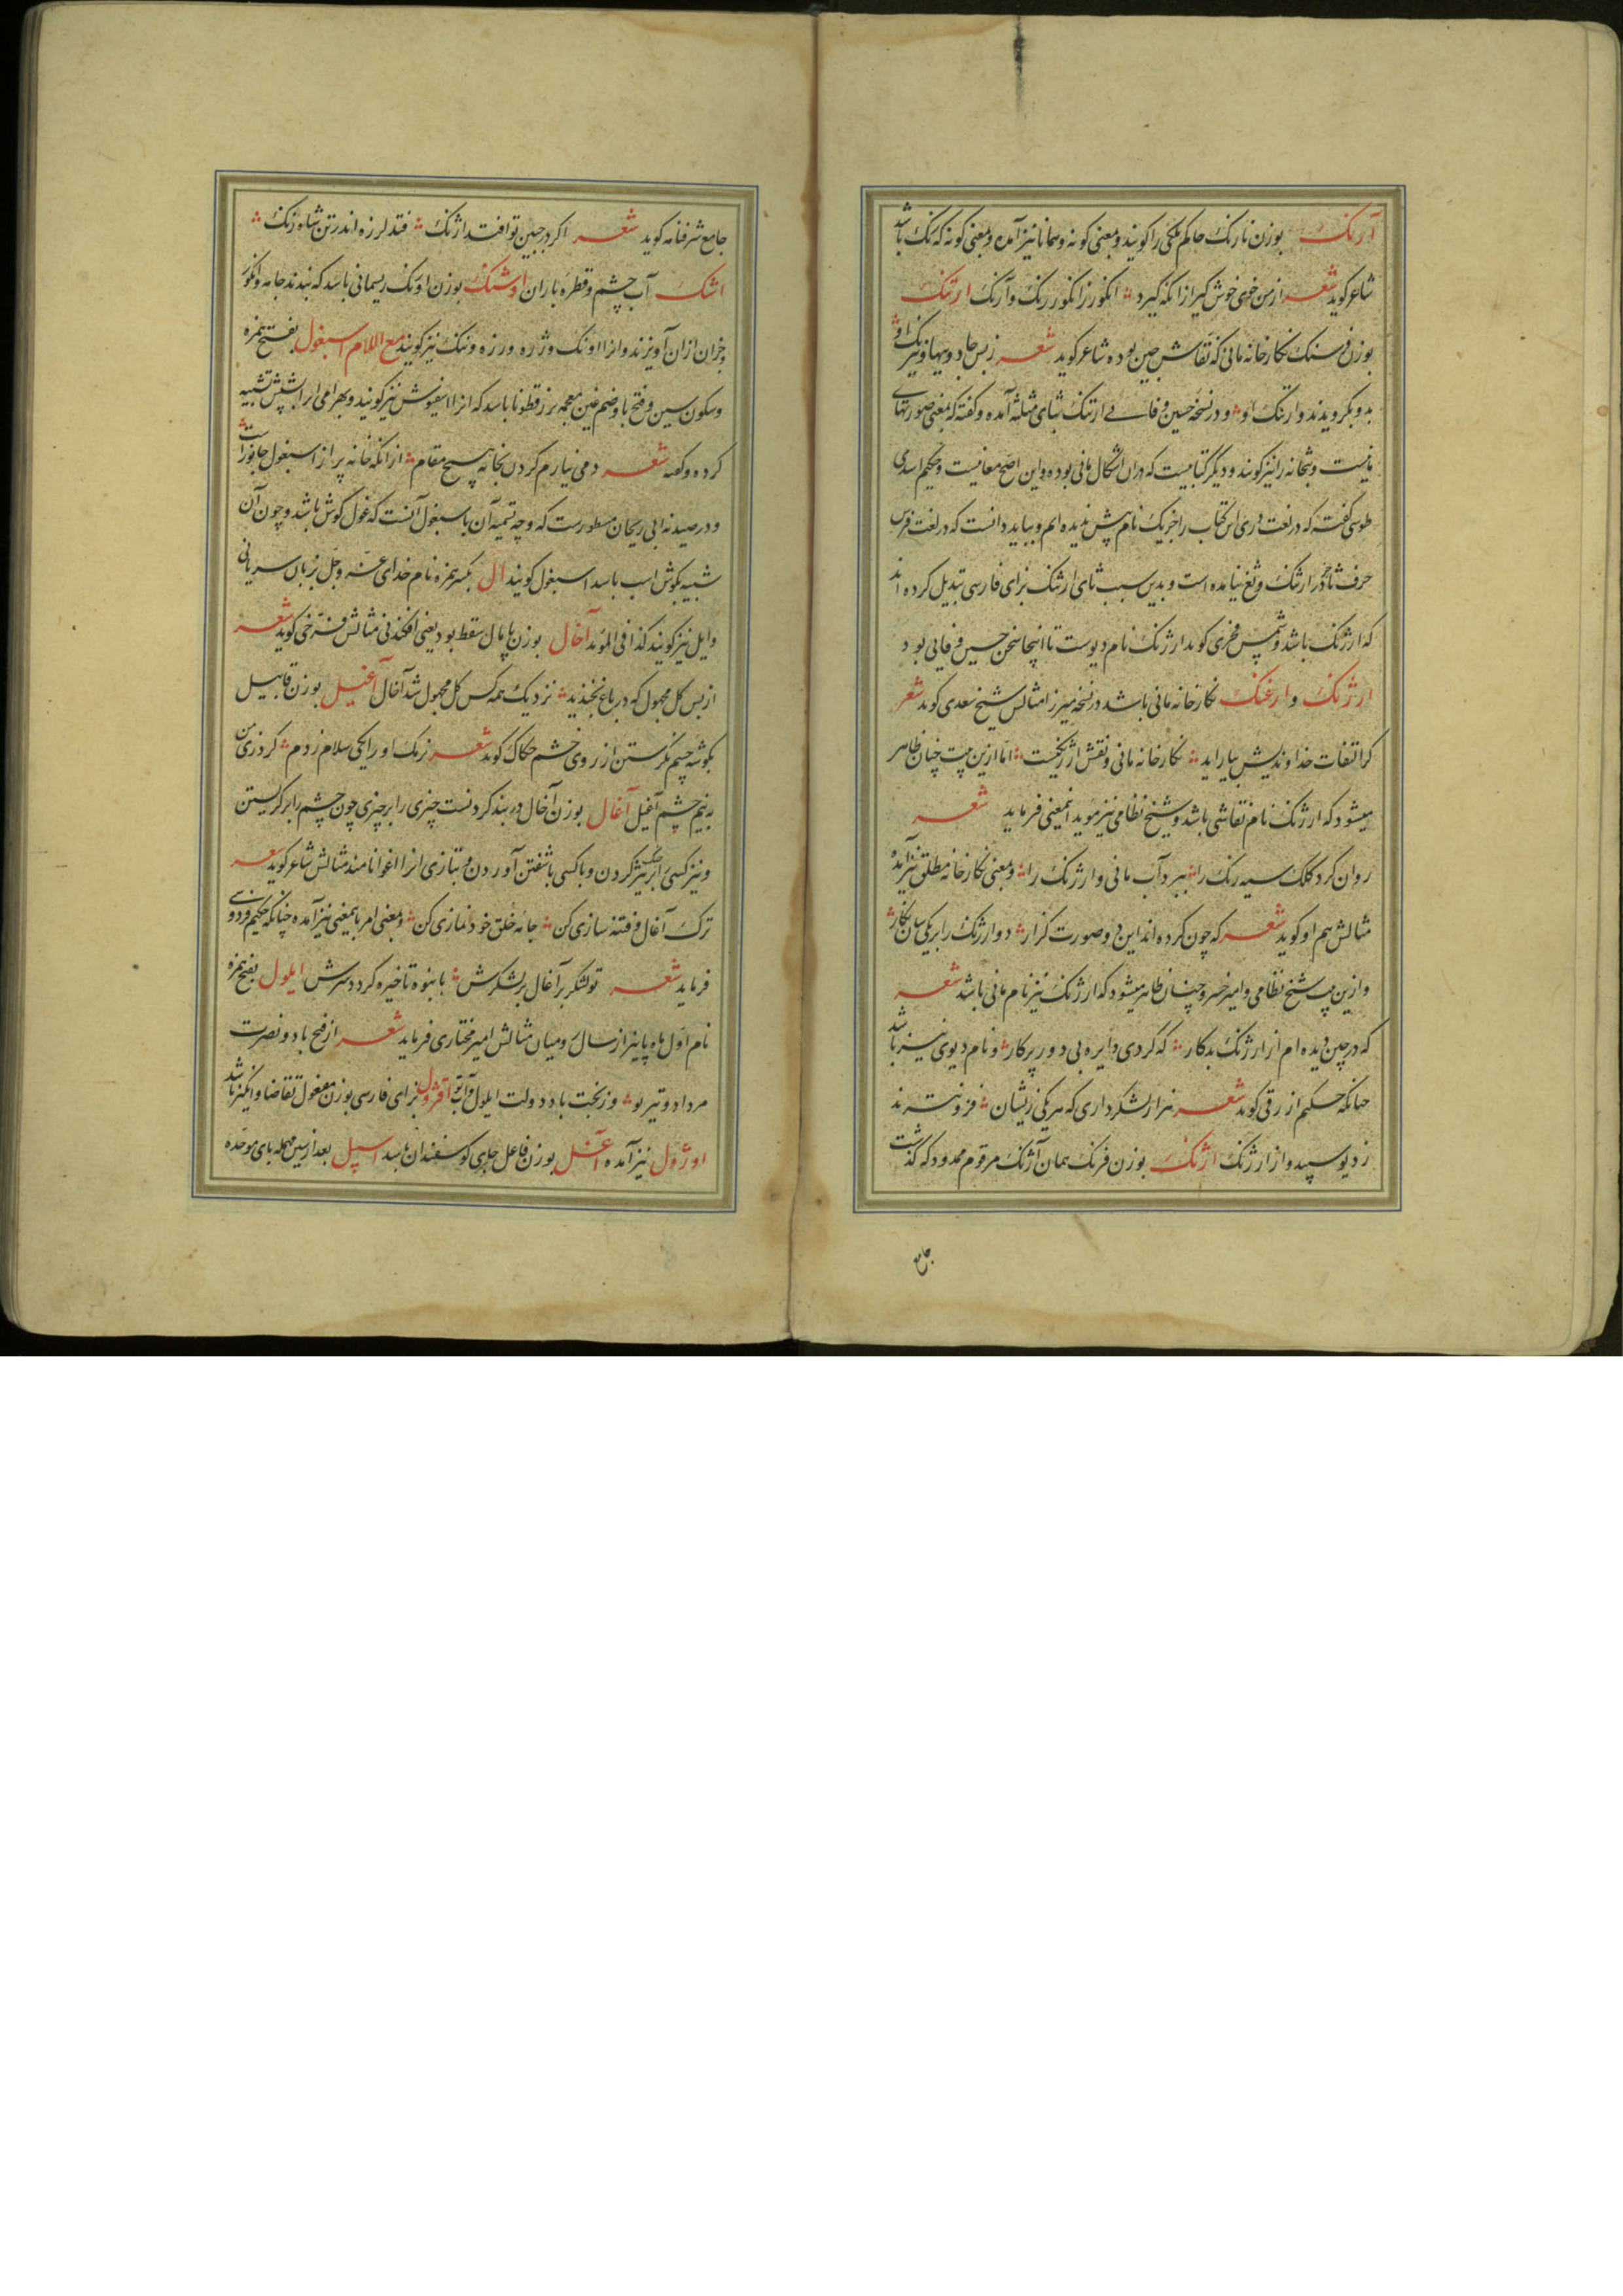 آرنک بوزن نارنک حاکم ملکی را کویند و بمعنی کونه و همانا نیز آمده و بمعنی کونه که رنک باشد
شاعر کوید شعر از من خوی خوش کیر از انکه کیرد انکور ز انکور رنک و آرنک ارتنک
بوزن فرسنک نکارخانه مانی که نقاش چین بوده شاعر کوید شعر ز بس جادویها و نیرنک او
بدو بکرویدند و ارتنک او و در نسخه حسین وفائی ارتنک بثای مثلثه آمده و کفته که بمعنی صورتهای
مانیست و بتخانه را نیز کویند و دیگر کتابیست که دران اشکال مانی بوده و این اصح معانیست و حکیم اسدی
طوسی کفته که در لغت دری این کتاب را جز یک نام پیش ندیده ام و بباید دانست که در لغت فرس
حرف ثا جز در ارثنک و ثغ نیامده است و بدین سبب ثای ارثنک بزای فارسی تبدیل کرده اند
که ارژنک باشد و شمس فخری کوید ارژنک نام دیوست تا اینجا سخن حسین وفایی بود
ارژنک و ارغنک نکارخانه مانی باشد در نسخه میرزا مثالش شیخ سعدی کوید شعر
کر التفات خداوندیش بیاراید نکارخانه مانی و نقش ارژنکیست اما ازین بیت چنان ظاهر
میشود که ارژنک نام نقاشی باشد و شیخ نظامی نیز موید اینمعنی فرماید شعر
روان کرد کلک سیه رنک را ببرد آب مانی و ارژنک را و بمعنی نکارخانه مطلق نیز آمده
مثالش هم او کوید شعر که چون کرده اند این دو صورت کزار دو ارژنک را بر یکی سان نکار
و ازین بیت شیخ نظامی و امیر خسرو چنان ظاهر میشود که ارژنک نیز نام مانی باشد شعر
که در چین دیده ام از ارژنک بدکار که کردی دایره بی دور پرکار و نام دیوی نیز باشد
چنانکه حکیم ازرقی کوید شعر هزار لشکر داری که هر یکی زیشان فزونترند
ز دیو سپید و از ارژنک اژنک بوزن فرنک همان آژنک مرقوم ممدود که کذشت
جامع
جامع شرفنامه کوید شعر اکر در جبین تو افتد اژنک فتد لرزه اندر تن شاه زنک
اشک آب چشم و قطره باران اوشنک بوزن اورنک ریسمانی باشد که بندند جامه و انکور
و جز آن ازان آویزند و انرا اونک و رژه و رزه و ننک نیز کویند مع اللام اسبغول بفتح همزه
و سکون سین و فتح با و ضم غین معجمه بزر قطونا باشد که انرا اسفیوش نیز کویند و بهرامی انرا بشپش تشبیه
کرده و کفته شعر دمی نیارم کردن بخانه هیچ مقام از انکه خانه پر از اسبغول جانور است
و در صیدنه ابی ریحان مسطورست که وجه تسمیه آن باسبغول آنست که غول کوش باشد و چون آن
شبیه بکوش اسب باشد اسبغول کویند ال بکسر همزه نام خدای عز و جل بزبان سریانی
وایل نیز کویند کذا فی الموید آخال بوزن پامال سقط بود یعنی افکندنی مثالش فرخی کوید شعر
از بس کل مجهول که در باغ بخندید نزدیک همه کس کل مجهول شد آخال آغیل بوزن قابیل
بکوشه چشم نکرستن از روی خشم حکاک کوید شعر زنک او را یکی سلام زدم کرد زی من
به نیم چشم آغیل آغال بوزن آخال در بند کردنست چیزی را بر چیزی چون چشم را بر نکریستن
و نیز کسی را بر جنک تیز کردن و با کسی باشفتن آوردن و بتازی انرا اغوا نامند مثالش شاعر کوید شعر
ترک آغال و فتنه سازی کن جامه خلق خود نمازی کن و بمعنی امر باینمعنی نیز آمده چنانکه حکیم فردوسی
فرماید شعر تو لشکر برآغال بر لشکرش بانبوه تا خیره کردد سرش ایلول بفتح همزه
نام اول ماه پاییز از سال رومیان مثالش امیر مختاری فرماید شعر از فتح باد و نصرت
مرداد و تیر تو وز بخت باد و دولت ایلول و آب تو افژول بزای فارسی بوزن مفعول تقاضا و انکیز باشد
اوژول نیز آمده آغل بوزن فاعل جای کوسفندان باشد اسپل بعد از سین مهمله بای موحده